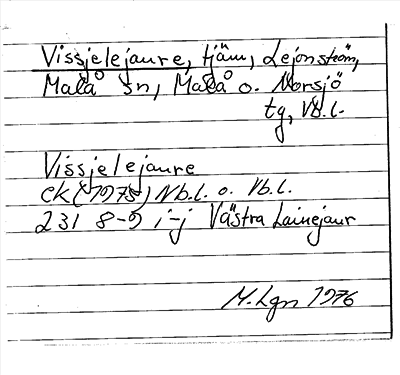 Vissjelejaure, tjärn, Lejonström,
Malå sn, Malå o. Norsjö
tg, Vb.l.
Vissjelejaure
ek (1975) Nb.l. o. Vb.l.
231 8-9 i-j Västra Lainejaur
M. Lgn 1976